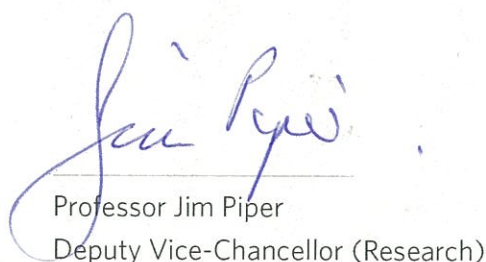 Jim Piper
Professor Jim Piper
Deputy Vice-Chancellor (Research)